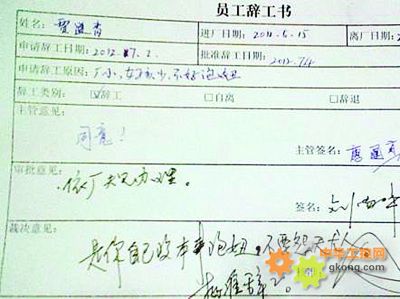 员工辞工书
姓名: 贾 进厂日期: 2011.5.15 离厂日期: 2
申请辞工日期: 2012.7.2. 批准辞工日期: 2012.7.4
申请辞工原因: 厂小,女孩少,不好泡妞
辞工类别: ☑辞工 □自离 □辞退
主管意见:
同意!
主管签名:
审批意见:
依厂规办理。
签名: 刘
裁决意见:
是你自己没本事泡妞,不要怨天尤人
批准辞工。
中华工控网
gkong.com